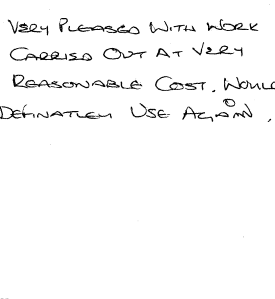 VERY PLEASED WITH WORK
CARRIED OUT AT VERY
REASONABLE COST. WOULD
DEFINATLEY USE AGAIN.